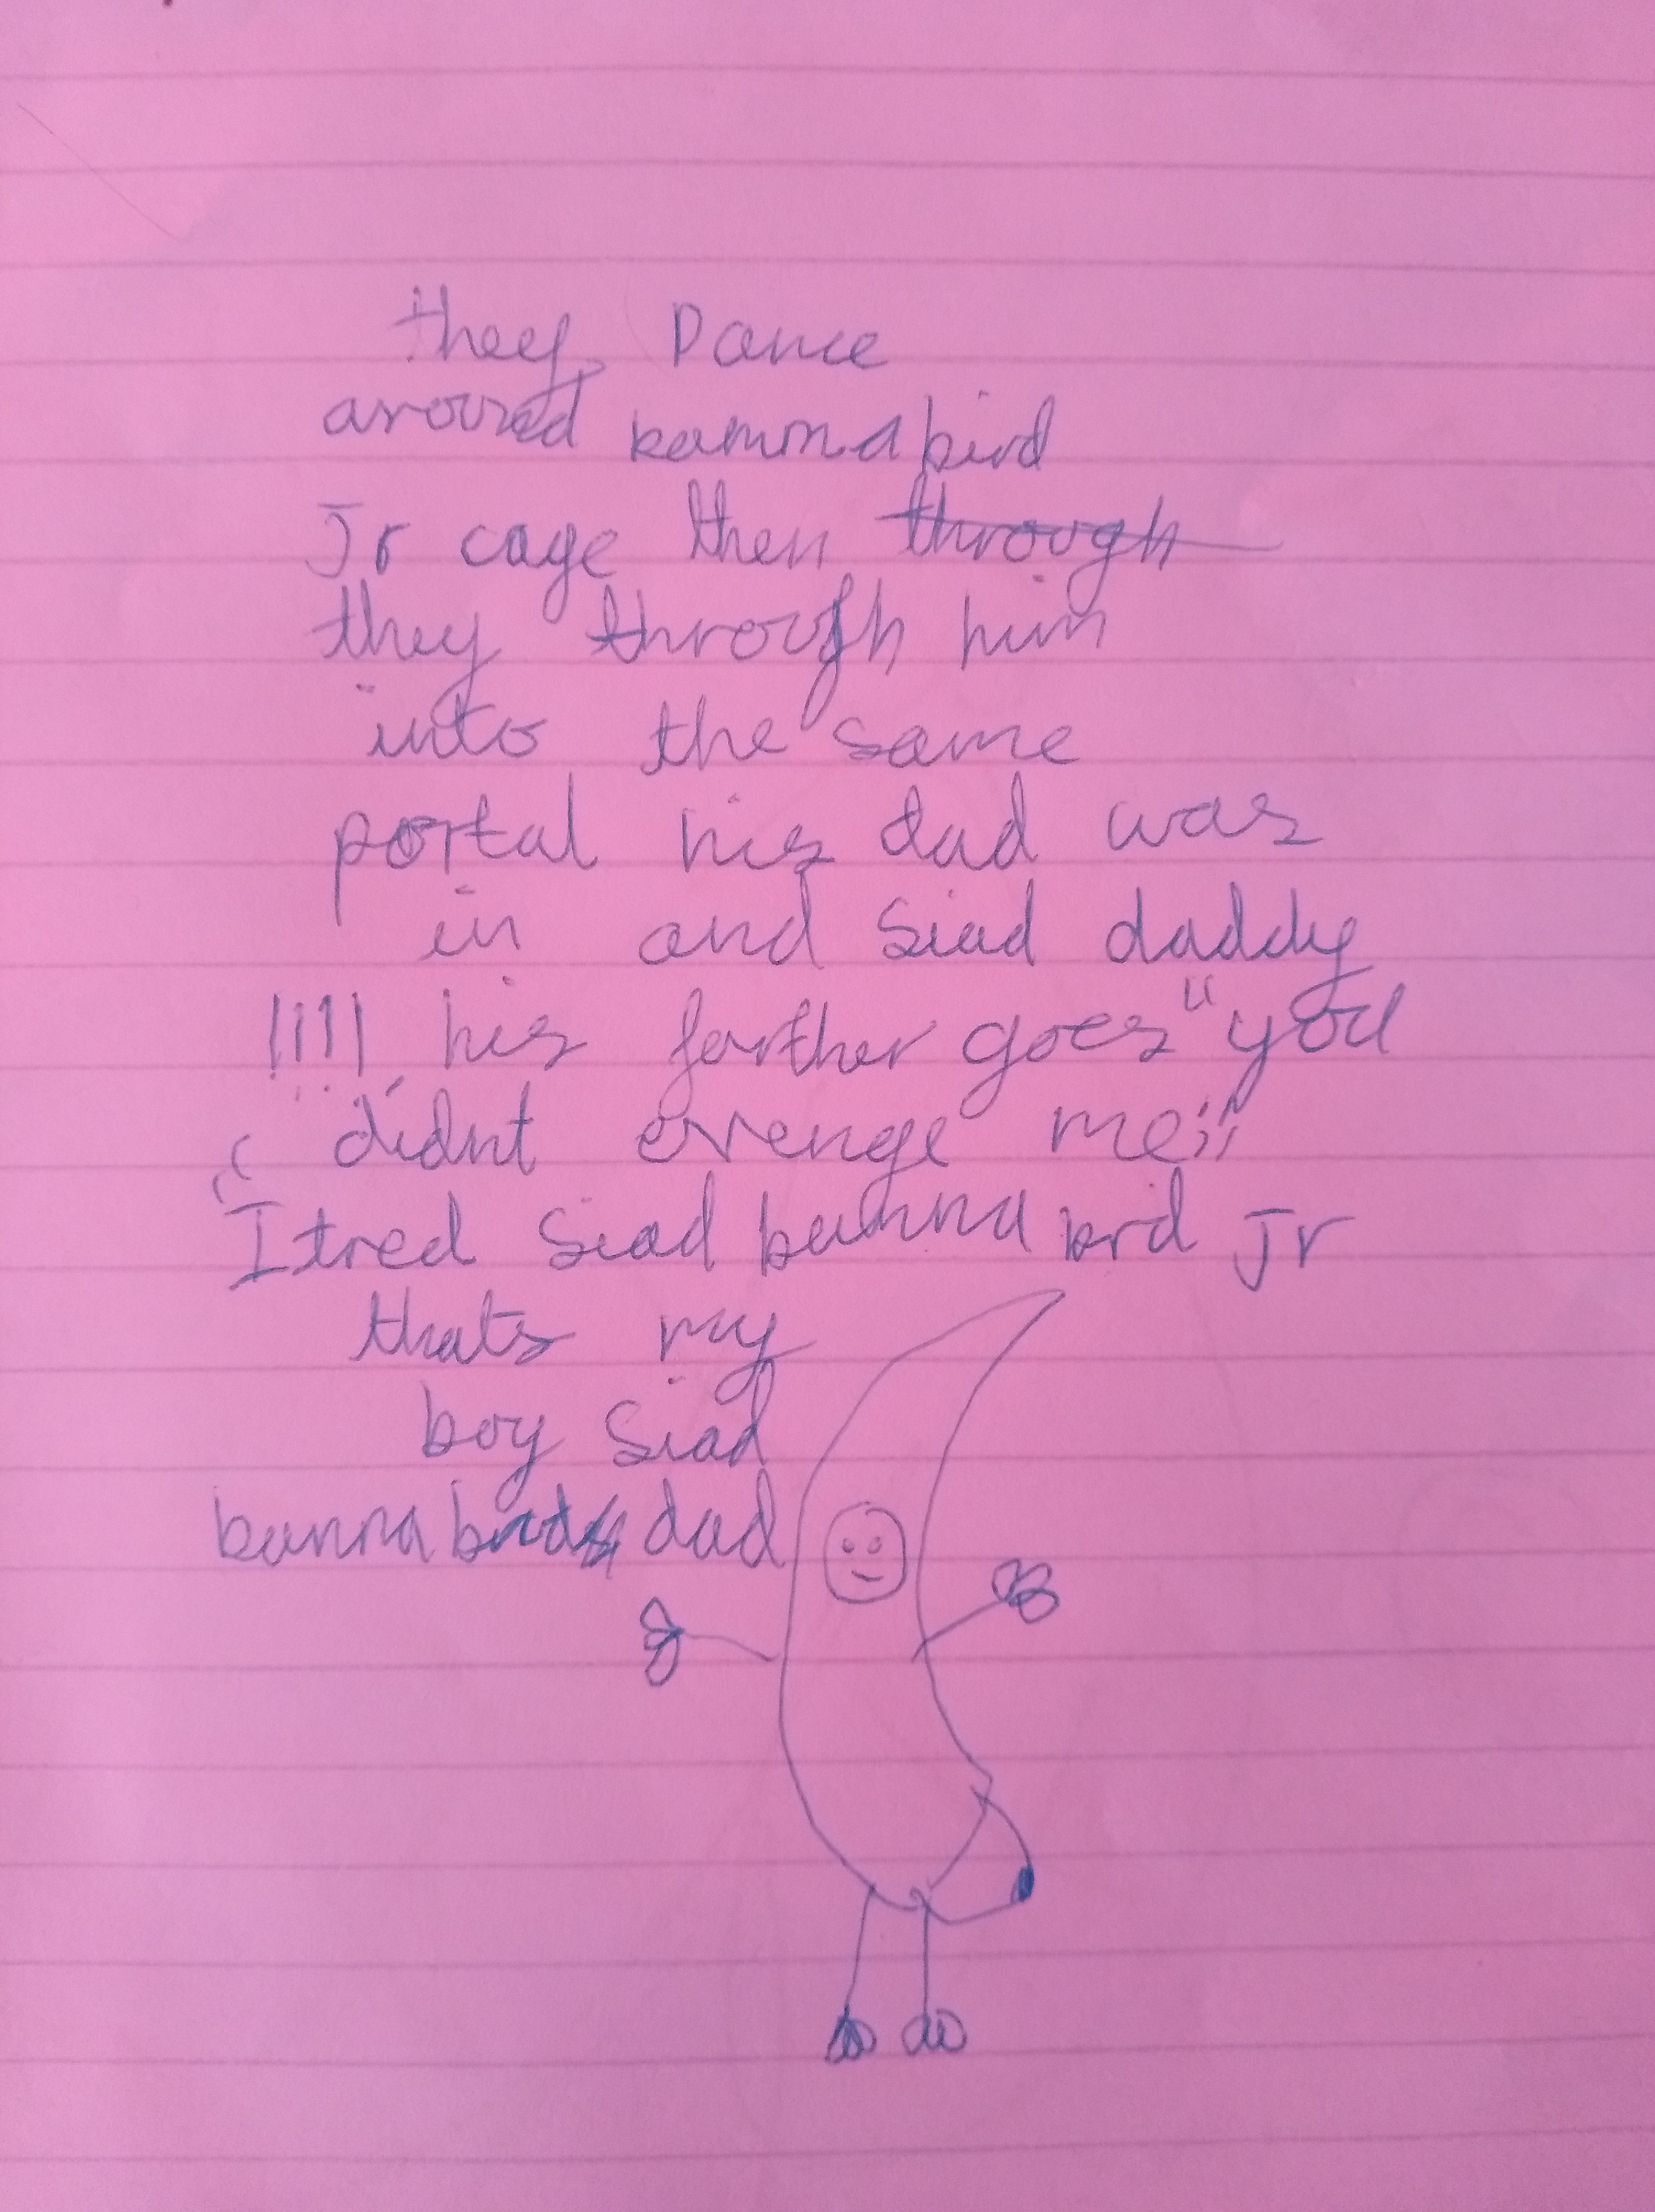 they Dance
around banna bird
Jr cage then through
they through him
into the same
portal his dad was
in and Siad daddy
!!!! his farther goes "you
didnt evenge me!"
"I tred Siad banna brd Jr
thats my
boy Siad
banna birds dad